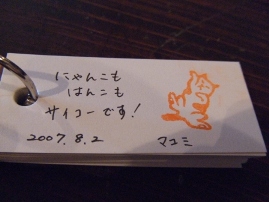 にゃんこも
はんこも
サイコーです!
2007.8.2
マユミ